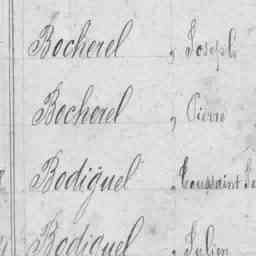 Bocherel, Joseph
Bocherel, Pierre
Bodiguel, Toussaint
Bodiguel, Julien